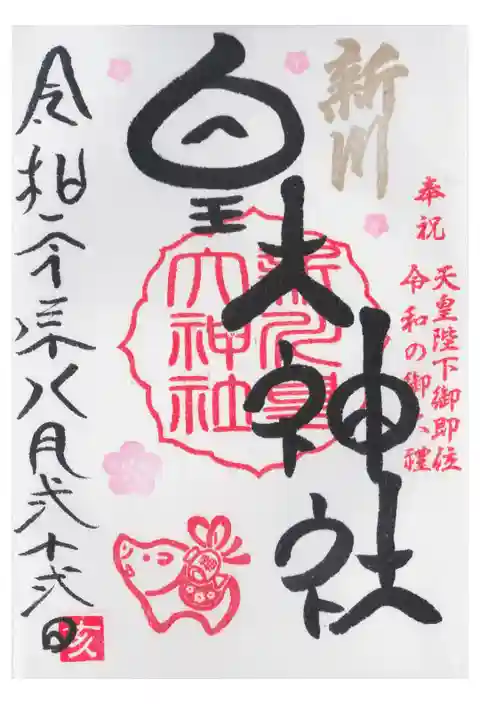 新川
奉祝
天皇陛下御即位
令和の御大禮
皇大神社
新川皇
大神社
令和元年八月弐十弐日
亥